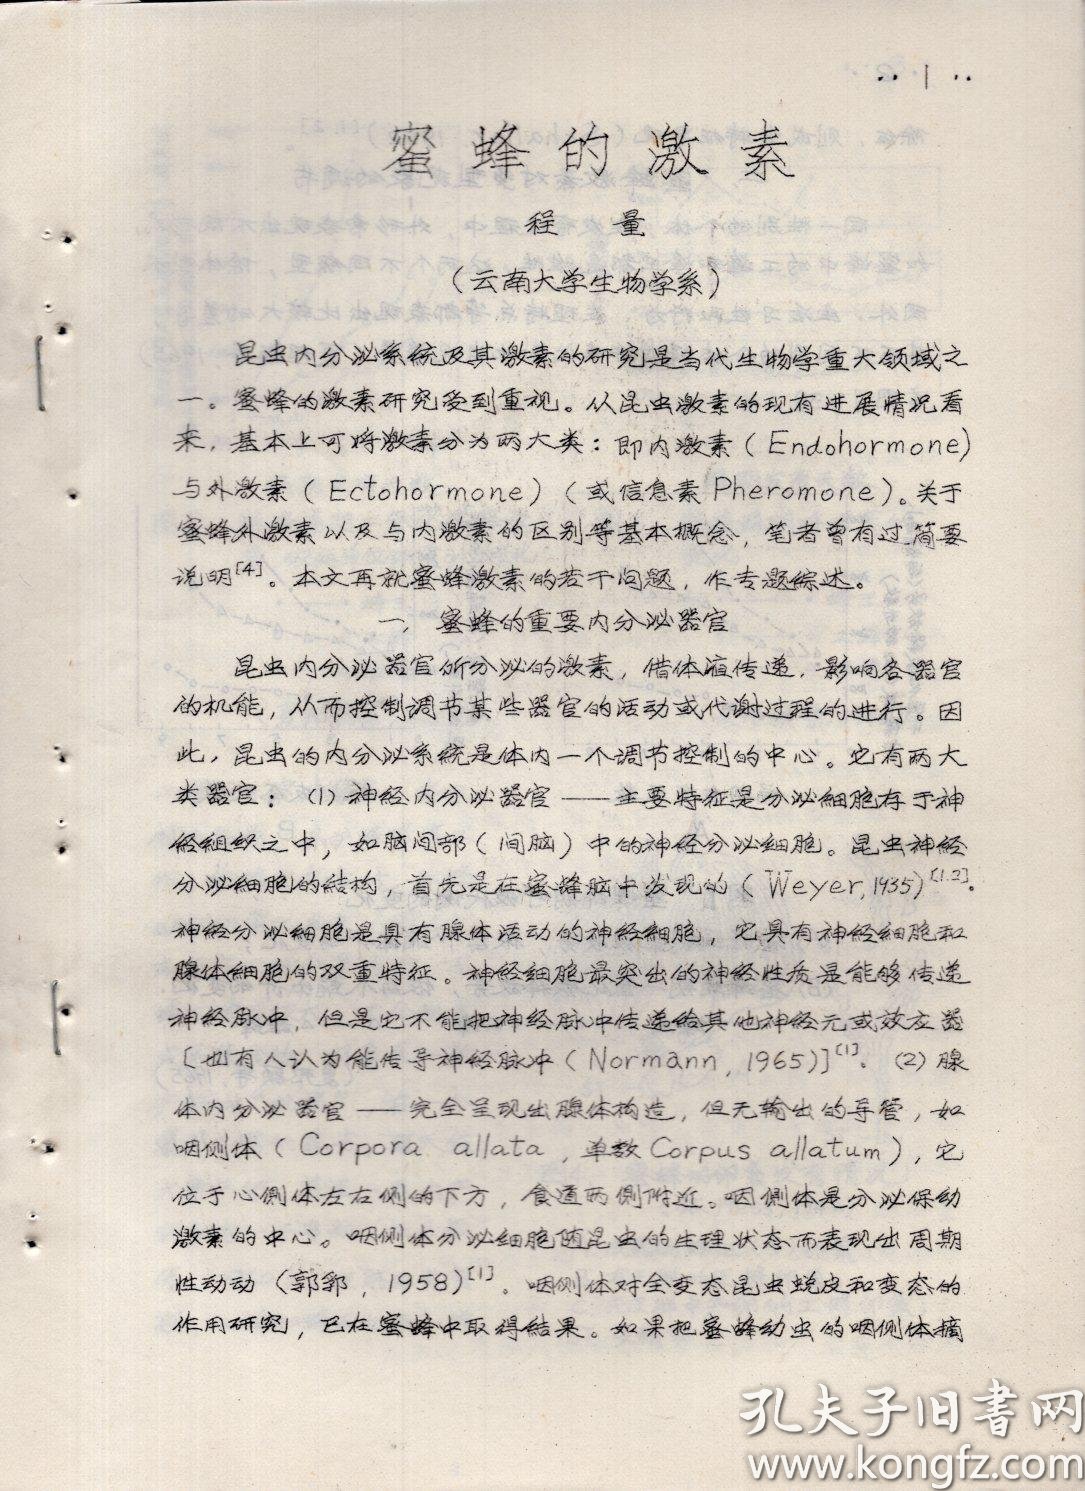 ·· 1 ··
蜜蜂的激素
程 量
（云南大学生物学系）
昆虫内分泌系统及其激素的研究是当代生物学重大领域之
一。蜜蜂的激素研究受到重视。从昆虫激素的现有进展情况看
来，基本上可将激素分为两大类：即内激素（Endohormone）
与外激素（Ectohormone）（或信息素Pheromone）。关于
蜜蜂外激素以及与内激素的区别等基本概念，笔者曾有过简要
说明[4]。本文再就蜜蜂激素的若干问题，作专题综述。
一、蜜蜂的重要内分泌器官
昆虫内分泌器官所分泌的激素，借体液传递，影响各器官
的机能，从而控制调节某些器官的活动或代谢过程的进行。因
此，昆虫的内分泌系统是体内一个调节控制的中心。它有两大
类器官：（1）神经内分泌器官——主要特征是分泌细胞存于神
经组织之中，如脑间部（间脑）中的神经分泌细胞。昆虫神经
分泌细胞的结构，首先是在蜜蜂脑中发现的（Weyer,1935）[1.2]。
神经分泌细胞是具有腺体活动的神经细胞，它具有神经细胞和
腺体细胞的双重特征。神经细胞最突出的神经性质是能够传递
神经脉冲，但是它不能把神经脉冲传递给其他神经元或效应器
［也有人认为能传导神经脉冲（Normann，1965）］[1]。（2）腺
体内分泌器官——完全呈现出腺体构造，但无输出的导管，如
咽侧体（Corpora allata，单数Corpus allatum），它
位于心侧体左右侧的下方，食道两侧附近。咽侧体是分泌保幼
激素的中心。咽侧体分泌细胞随昆虫的生理状态而表现出周期
性动动（郭郛，1958）[1]。咽侧体对全变态昆虫蜕皮和变态的
作用研究，已在蜜蜂中取得结果。如果把蜜蜂幼虫的咽侧体摘
孔夫子旧书网
www.kongfz.com